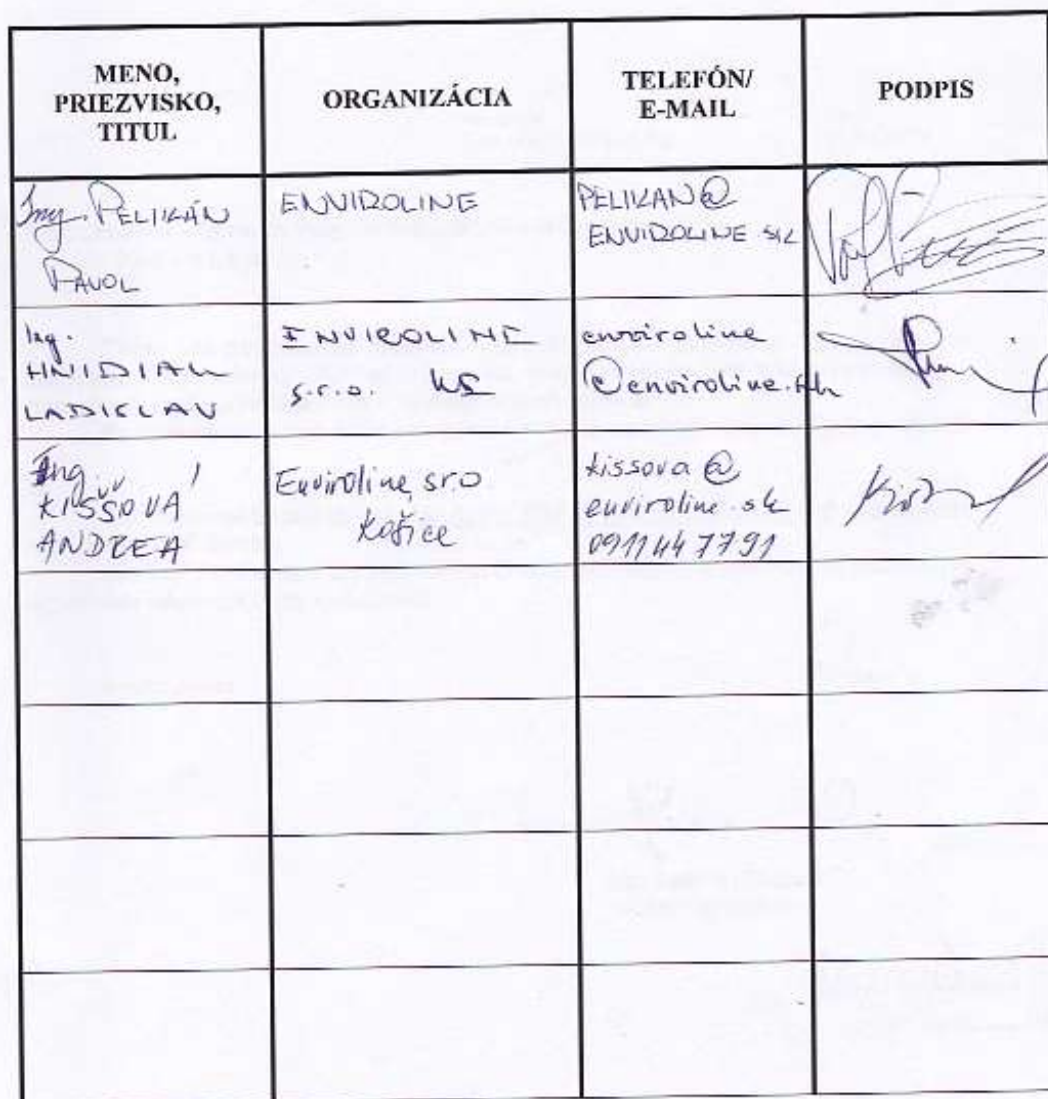 MENO,
PRIEZVISKO,
TITUL
ORGANIZÁCIA
TELEFÓN/
E-MAIL
PODPIS
Ing. PELIKÁN
PAVOL
ENVIROLINE
PELIKAN@
ENVIROLINE SK
Ing.
HNIDIAK
LADISLAV
ENVIROLINE
s.r.o. KE
enviroline
@enviroline.sk
Ing.
KIŠŠOVÁ
ANDREA
Enviroline, s.r.o.
Košice
kissova@
enviroline.sk
0911447791